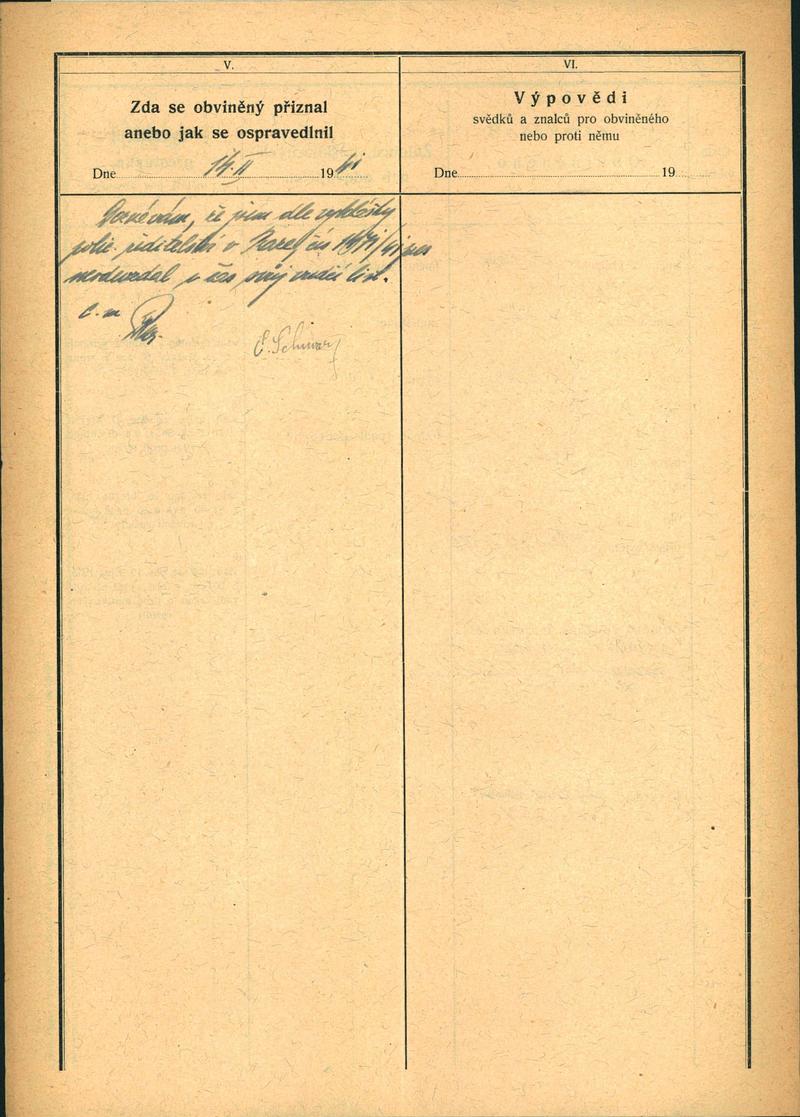 V.
Zda se obviněný přiznal
anebo jak se ospravedlnil
Dne 14. II 1941
VI.
Výpovědi
svědků a znalců pro obviněného
nebo proti němu
Dne 19
Doznávám, že jsem dle vyhlášky
polic. ředitelství v Praze čís
neodevzdal v čas svůj vůdčí list.
E. Schwarz